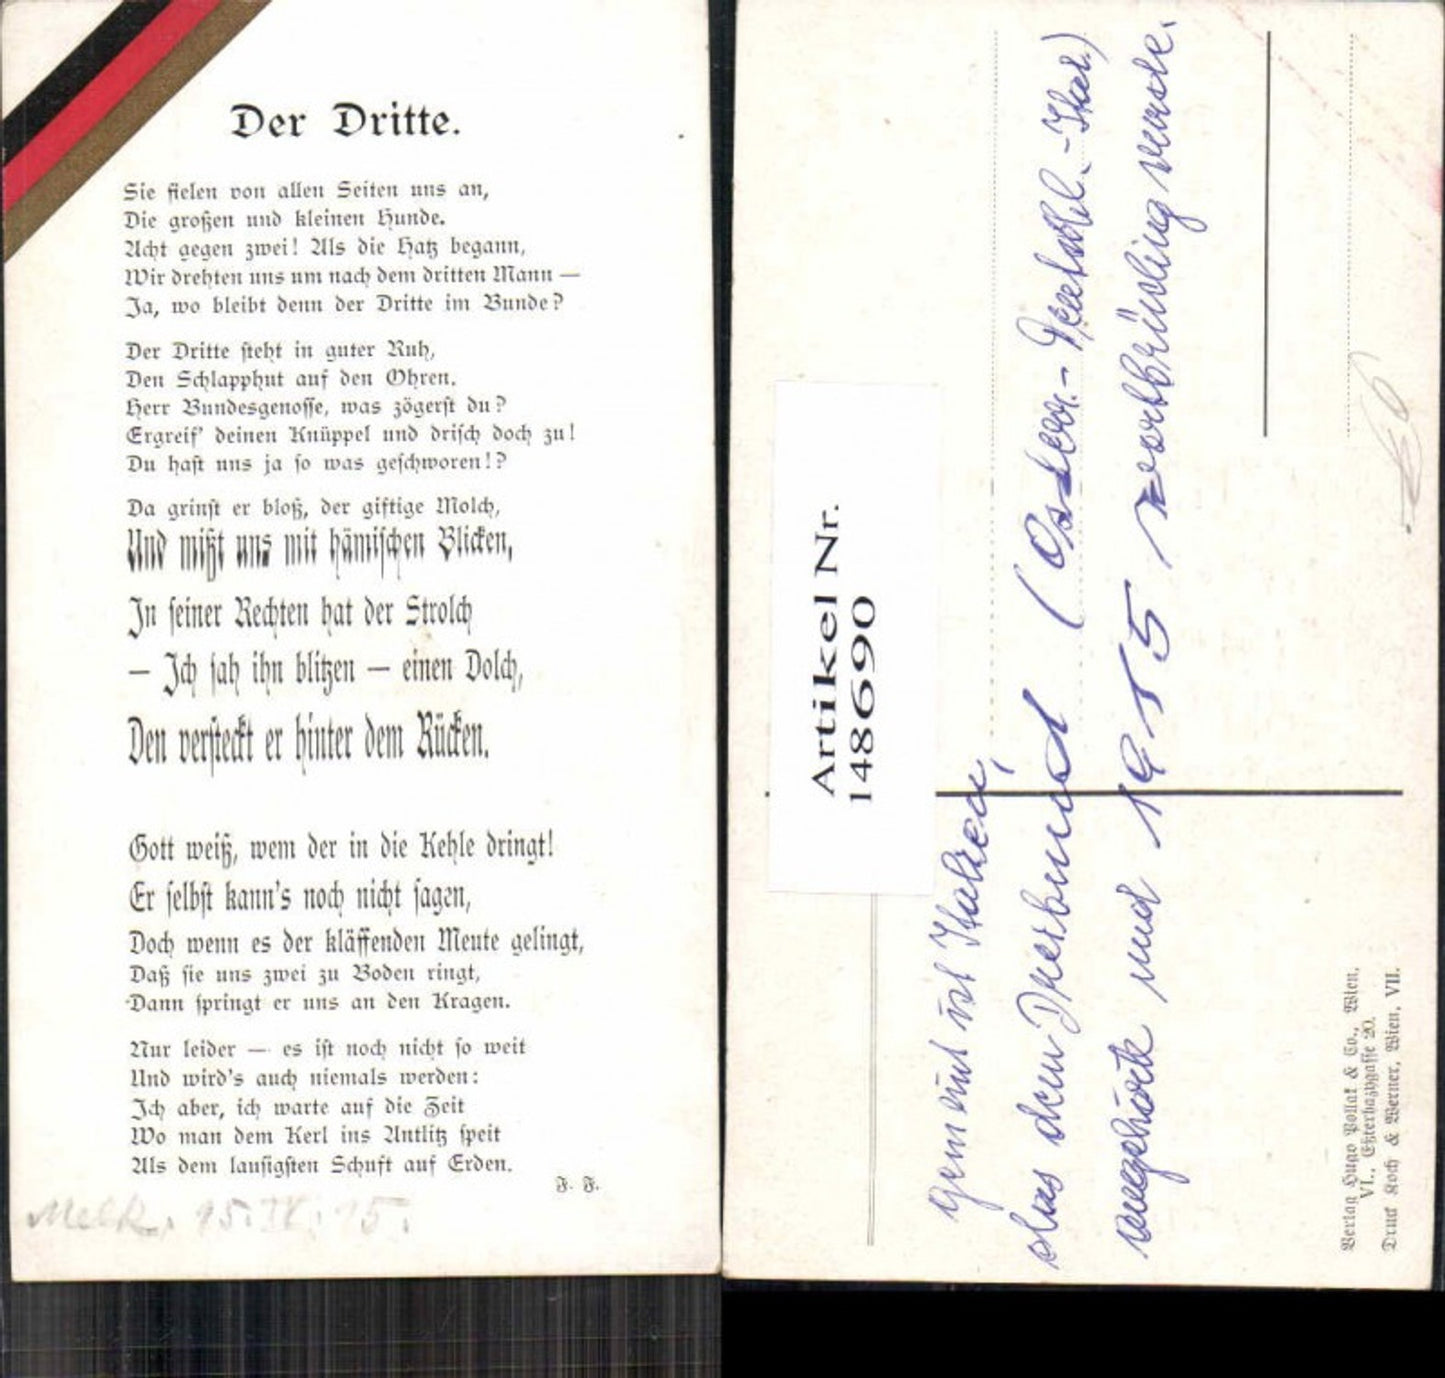 Der Dritte.
Sie fielen von allen Seiten uns an,
Die großen und kleinen Hunde.
Acht gegen zwei! Als die Hatz begann,
Wir drehten uns um nach dem dritten Mann —
Ja, wo bleibt denn der Dritte im Bunde?
Der Dritte steht in guter Ruh,
Den Schlapphut auf den Ohren.
Herr Bundesgenosse, was zögerst du?
Ergreif' deinen Knüppel und drisch doch zu!
Du hast uns ja so was geschworen!?
Da grinst er bloß, der giftige Molch,
Und mißt uns mit hämischen Blicken,
In seiner Rechten hat der Strolch
— Ich sah ihn blitzen — einen Dolch,
Den versteckt er hinter dem Rücken.
Gott weiß, wem der in die Kehle dringt!
Er selbst kann's noch nicht sagen,
Doch wenn es der kläffenden Meute gelingt,
Daß sie uns zwei zu Boden ringt,
Dann springt er uns an den Kragen.
Nur leider — es ist noch nicht so weit
Und wird's auch niemals werden:
Ich aber, ich warte auf die Zeit
Wo man dem Kerl ins Antlitz speit
Als dem lausigsten Schuft auf Erden.
F. F.
Melk, 15. IV. 15.
Artikel Nr.
148690
gemeint ist Italien,
das dem Dreibund (Österr.- Deutschl.-Ital.)
angehörte und 1915 wortbrüchig wurde.
Verlag Hugo Pollak & Co., Wien,
VI., Eßterhazygasse 20.
Druck Koch & Werner, Wien, VII.